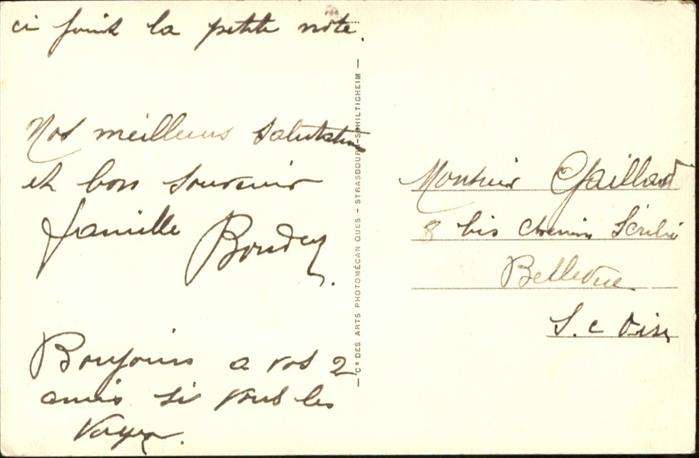 ci joint la petite note.
Nos meilleurs salutations
et bon souvenir
famille Boudey.
Bonjours a vos 2
amis si vous les
voyez.
— Cie DES ARTS PHOTOMÉCANIQUES — STRASBOURG-SCHILTIGHEIM —
Monsieur Gaillard
8 bis chemin
Bellevue
S. e Oise